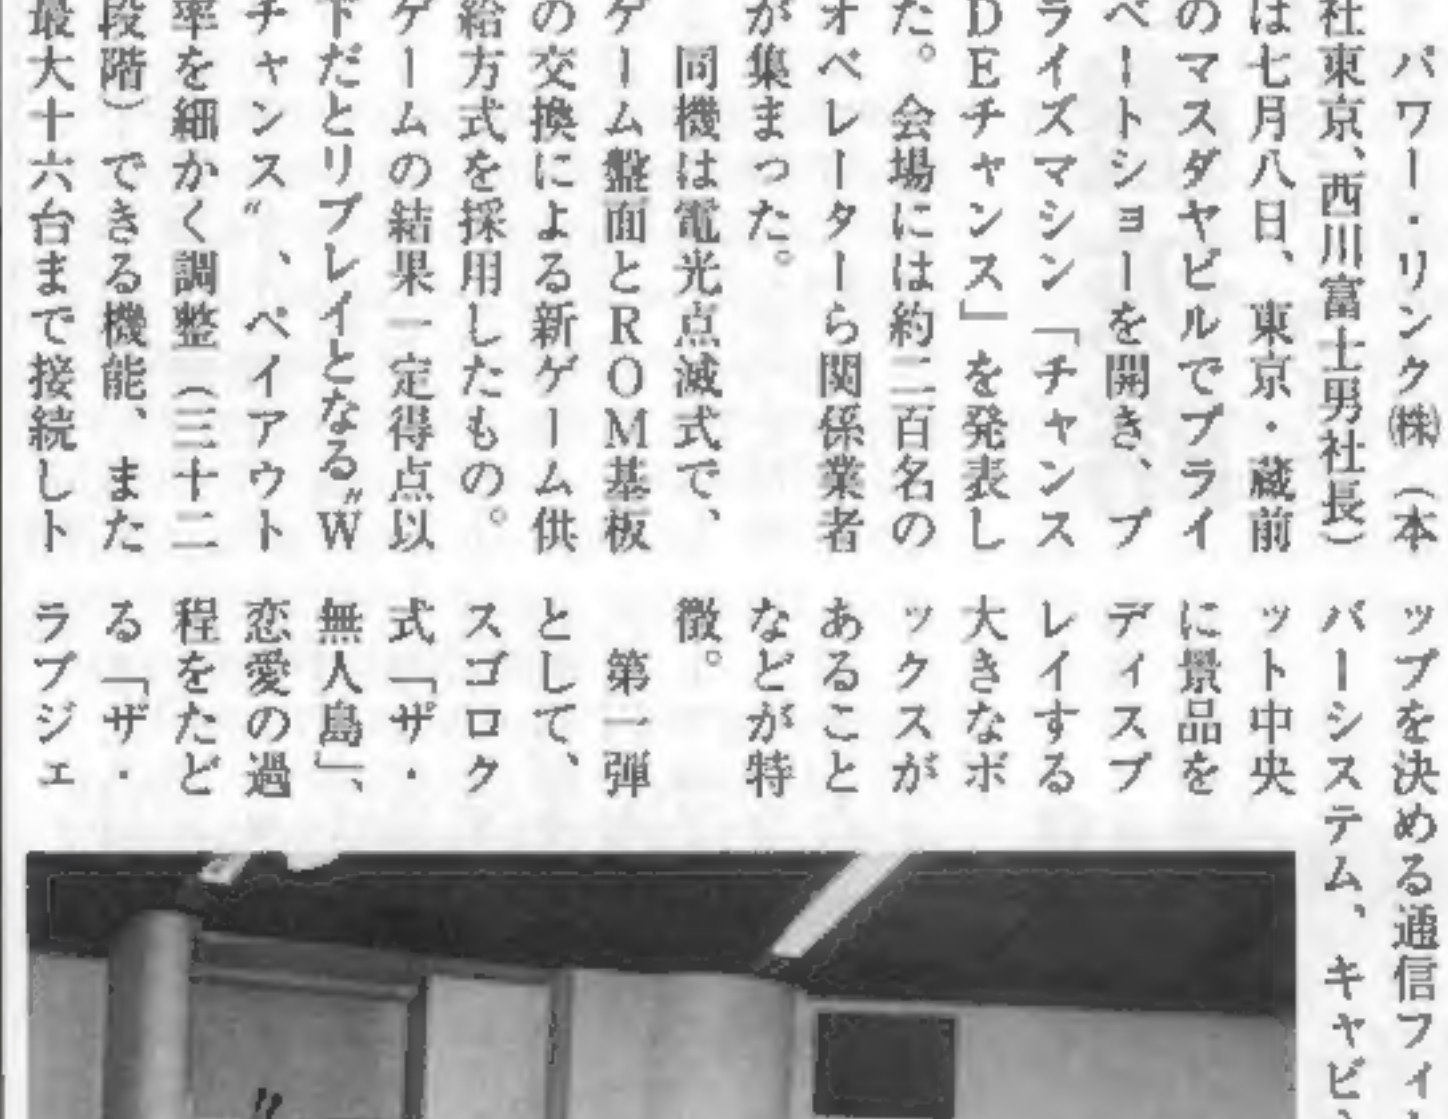 パワー・リンク㈱(本
社東京、西川富士男社長)
は七月八日、東京・蔵前
のマスダヤビルでプライ
ベートショーを開き、プ
ライズマシン「チャンス
DEチャンス」を発表し
た。会場には約二百名の
オペレーターら関係業者
が集まった。
同機は電光点滅式で、
ゲーム盤面とROM基板
の交換による新ゲーム供
給方式を採用したもの。
ゲームの結果一定得点以
下だとリプレイとなる〝W
チャンス〟、ペイアウト
率を細かく調整(三十二
段階)できる機能、また
最大十六台まで接続しト
ップを決める通信フィ
バーシステム、キャビ
ット中央
に景品を
ディスプ
レイする
大きなボ
ックスが
あること
などが特
徴。
第一弾
として、
スゴロク
式「ザ・
無人島」、
恋愛の過
程をたど
る「ザ・
ラブジェ